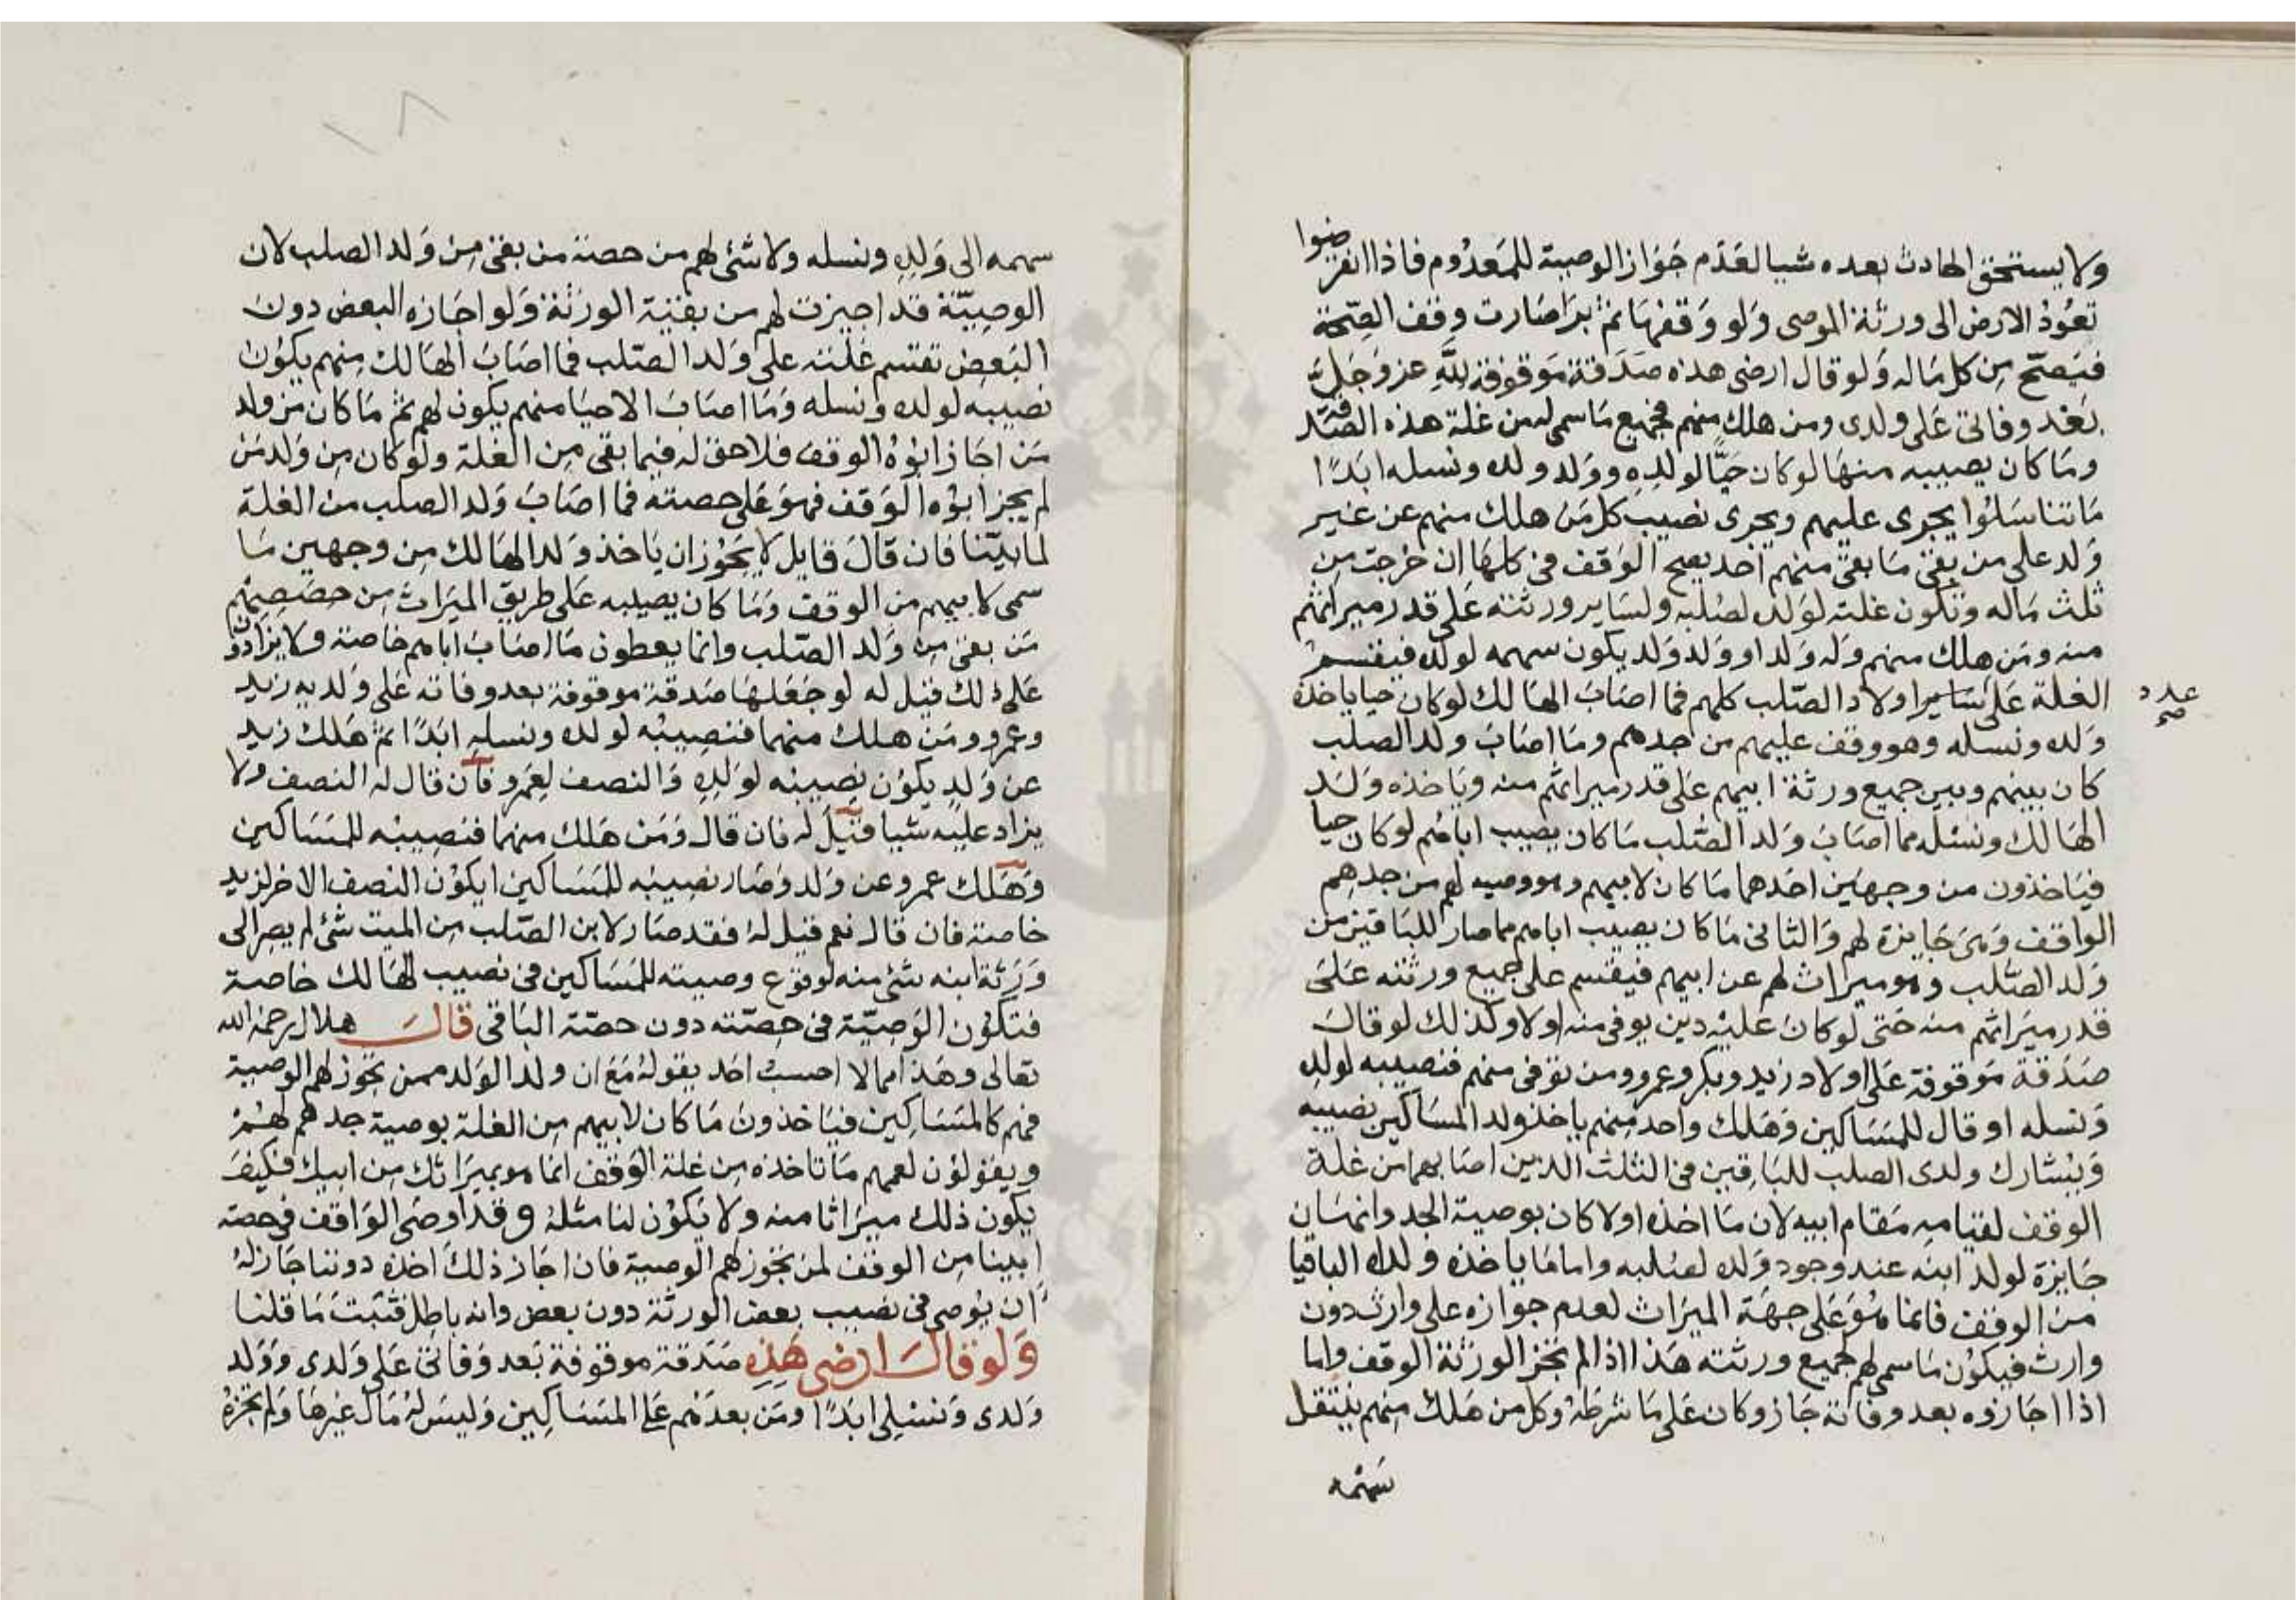 ولا يستحق الحادث بعده شيا لعدم جواز الوصية للمعدوم فاذا انقرضوا
تعود الارض الى ورثة الموصى ولو وقفها ثم برا صارت وقف الصحة
فتصح من كل ماله ولو قال ارضى هذه صدقة موقوفة لله عز وجل
بعد وفاتى على ولدى ومن هلك منهم فجميع ما سمى له من غلة هذه الصدقة
وما كان يصيبه منها لو كان حيا لولده وولد ولده ونسله ابدا
ما تناسلوا يجرى عليهم ويجرى نصيب كل من هلك منهم عن غير
ولد على من بقى ما بقى منهم احد يصح الوقف فى كلها ان خرجت من
ثلث ماله وتكون غلته لولده لصلبه ولساير ورثته على قدر ميراثهم
منه ومن هلك منهم وله ولد او ولد ولد يكون سهمه لولده فيقسم
الغلة على ساير اولاد الصلب كلهم فما اصاب الهالك لو كان حيا ياخذه
عدد
صح
ولده ونسله وهو وقف عليهم من جدهم وما اصاب ولد الصلب
كان بينهم وبين جميع ورثة ابيهم على قدر ميراثهم منه وياخذه ولد
الهالك ونسله مما اصاب ولد الصلب ما كان يصيب اباهم لو كان حيا
فياخذون من وجهين احدهما ما كان لابيهم وهو وصية لهم من جدهم
الواقف وهى جايزة لهم والثانى ما كان يصيب اباهم مما صار للباقين من
ولد الصلب وهو ميراث لهم عن ابيهم فيقسم على جميع ورثته على
قدر ميراثهم منه حتى لو كان عليه دين يوفى منه اولا وكذلك لو قال
صدقة موقوفة على اولاد زيد وبكر وعمرو ومن توفى منهم فنصيبه لولده
ونسله او قال للمساكين وهلك واحد منهم ياخذ ولد المساكين نصيبه
ويشارك ولدى الصلب للباقين فى الثلث الذين اصابهما من غلة
الوقف لقيامه مقام ابيه لان ما اخذه اولا كان بوصية الجد وانها
جايزة لولد ابنه عند وجود ولده لصلبه واما ما ياخذه ولده الباقيا
من الوقف فانما هو على جهة الميراث لعدم جوازه على وارث دون
وارث فيكون ما سمى لهم لجميع ورثته هذا اذا لم تجز الورثة الوقف واما
اذا اجازوه بعد وفاته جاز وكان على ما شرطه وكل من هلك منهم ينتقل
سهمه
سهمه الى ولده ونسله ولا شئ لهم من حصة من بقى من ولد الصلب لان
الوصية قد اجيزت لهم من بقية الورثة ولو اجازه البعض دون
البعض تقسم غلته على ولد الصلب فما اصاب الهالك منهم يكون
نصيبه لولده ونسله وما اصاب الاحيا منهم يكون لهم ثم ما كان من ولد
من اجاز ابوه الوقف فلا حق له فيما بقى من الغلة ولو كان من ولد من
لم يجز ابوه الوقف فهو على حصته فما اصاب ولد الصلب من الغلة
لما بينا فان قال قايل لا يجوز ان ياخذ ولد الهالك من وجهين ما
سمى لابيهم من الوقف وما كان يصيبه على طريق الميراث من حصصهم
من بقى من ولد الصلب وانما يعطون ما اصاب اباهم خاصة ولا يزادون
على ذلك قيل له لو جعلها صدقة موقوفة بعد وفاته على ولديه زيد
وعمرو ومن هلك منهما فنصيبه لولده ونسله ابدا ثم هلك زيد
عن ولد يكون نصيبه لولده والنصف لعمرو فان قال له النصف ولا
يزاد عليه شيا قيل له فان قال ومن هلك منهما فنصيبه للمساكين
وهلك عمرو عن ولد وصار نصيبه للمساكين ايكون النصف الاخر لزيد
خاصة فان قال نعم قيل له فقد صار لابن الصلب من الميت شئ لم يصر الى
ورثة ابنه شئ منه لوقوع وصيته للمساكين فى نصيب الهالك خاصة
فتكون الوصية فى حصته دون حصة الباقى قال هلال رحمه الله
تعالى وهذا مما لا احسب احد يقوله مع ان ولد الولد ممن تجوز لهم الوصية
فهم كالمساكين فياخذون ما كان لابيهم من الغلة بوصية جدهم لهم
ويقولون لعمهم ما تاخذه من غلة الوقف انما هو بميراثك من ابيك فكيف
يكون ذلك ميراثا منه ولا يكون لنا مثله وقد اوصى الواقف فى حصة
ابينا من الوقف لمن تجوز لهم الوصية فان اجاز ذلك اخذه دوننا جاز له
ان يوصى فى نصيب بعض الورثة دون بعض وانه باطل فثبت ما قلنا
ولو قال ارضى هذه صدقة موقوفة بعد وفاتى على ولدى وولد
ولدى ونسلى ابدا ومن بعدهم على المساكين وليس له مال غيرها ولم تجزه